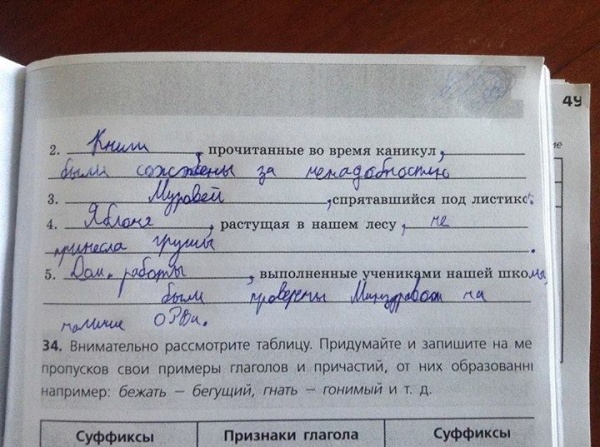 49
2. Книги, прочитанные во время каникул,
были сожжены за ненадобностью
3. Муравей, спрятавшийся под листик.
4. Яблоня, растущая в нашем лесу, не
принесла груши.
5. Дом. работы, выполненные учениками нашей школы,
были проверены Минздравом на
наличие ОРВи.
34. Внимательно рассмотрите таблицу. Придумайте и запишите на ме
пропусков свои примеры глаголов и причастий, от них образованн
например: бежать – бегущий, гнать – гонимый и т. д.
Суффиксы Признаки глагола Суффиксы